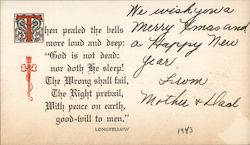 Then pealed the bells
more loud and deep:
"God is not dead:
nor doth He sleep!
The Wrong shall fail,
The Right prevail,
With peace on earth,
good-will to men."
LONGFELLOW
We wish you a
Merry Xmas and
a Happy New
Year.
From
Mother & Dad
1943